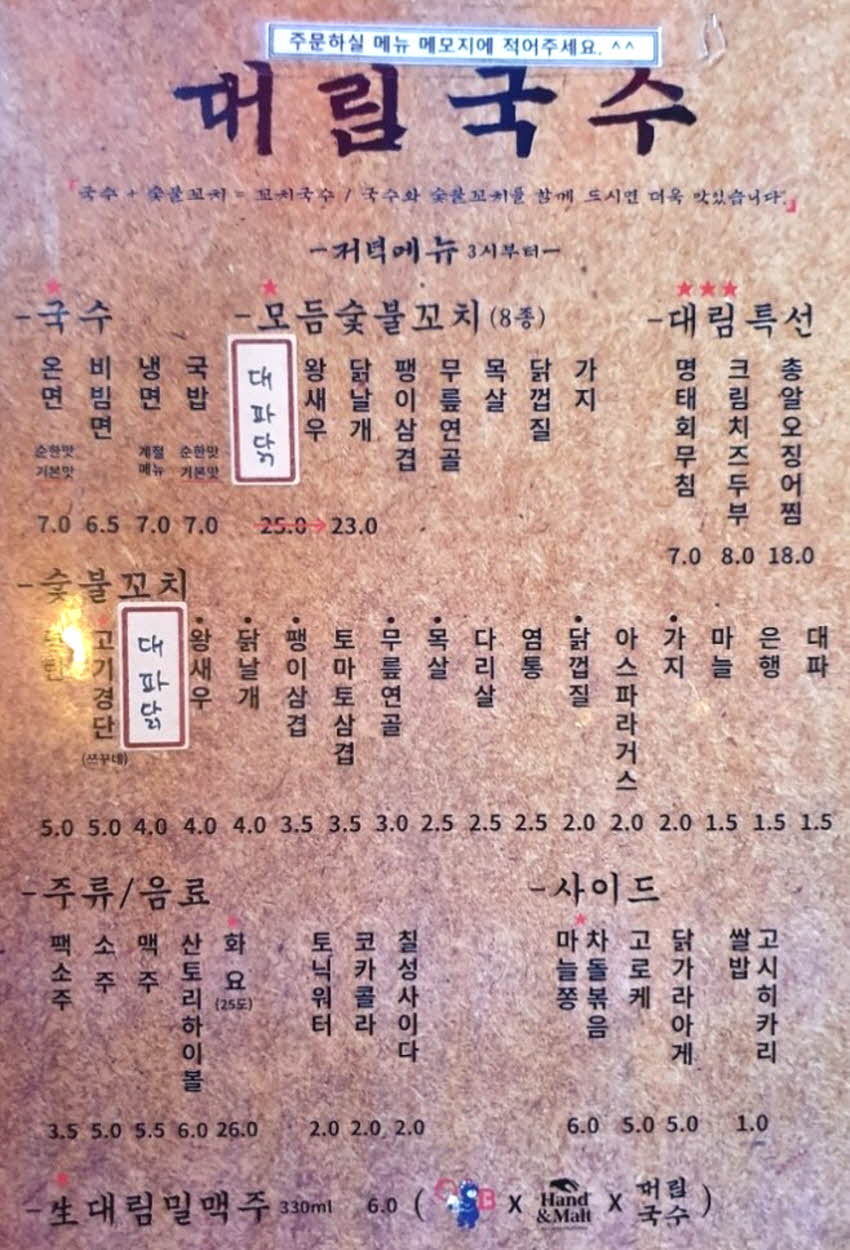 주문하실 메뉴 메모지에 적어주세요. ^^
대림국수
「국수 + 숯불꼬치 = 꼬치국수 / 국수와 숯불꼬치를 함께 드시면 더욱 맛있습니다.」
-저녁메뉴 3시부터-
-국수
온면 순한맛 기본맛 7.0
비빔면 6.5
냉면 계절메뉴 7.0
국밥 순한맛 기본맛 7.0
-모듬숯불꼬치(8종)
대파닭
왕새우
닭날개
팽이삼겹
무릎연골
목살
닭껍질
가지
25.0→23.0
-대림특선
명태회무침 7.0
크림치즈두부 8.0
총알오징어찜 18.0
-숯불꼬치
5.0
고기경단 (쯔꾸네) 5.0
대파닭 4.0
왕새우 4.0
닭날개 4.0
팽이삼겹 3.5
토마토삼겹 3.5
무릎연골 3.0
목살 2.5
다리살 2.5
염통 2.5
닭껍질 2.0
아스파라거스 2.0
가지 2.0
마늘 1.5
은행 1.5
대파 1.5
-주류/음료
팩소주 3.5
소주 5.0
맥주 5.5
산토리하이볼 6.0
화요 (25도) 26.0
토닉워터 2.0
코카콜라 2.0
칠성사이다 2.0
-사이드
마늘쫑 차돌볶음 6.0
고로케 5.0
닭가라아게 5.0
쌀밥 고시히카리 1.0
-生대림밀맥주 330ml 6.0 ( X Hand &Malt X 대림국수 )